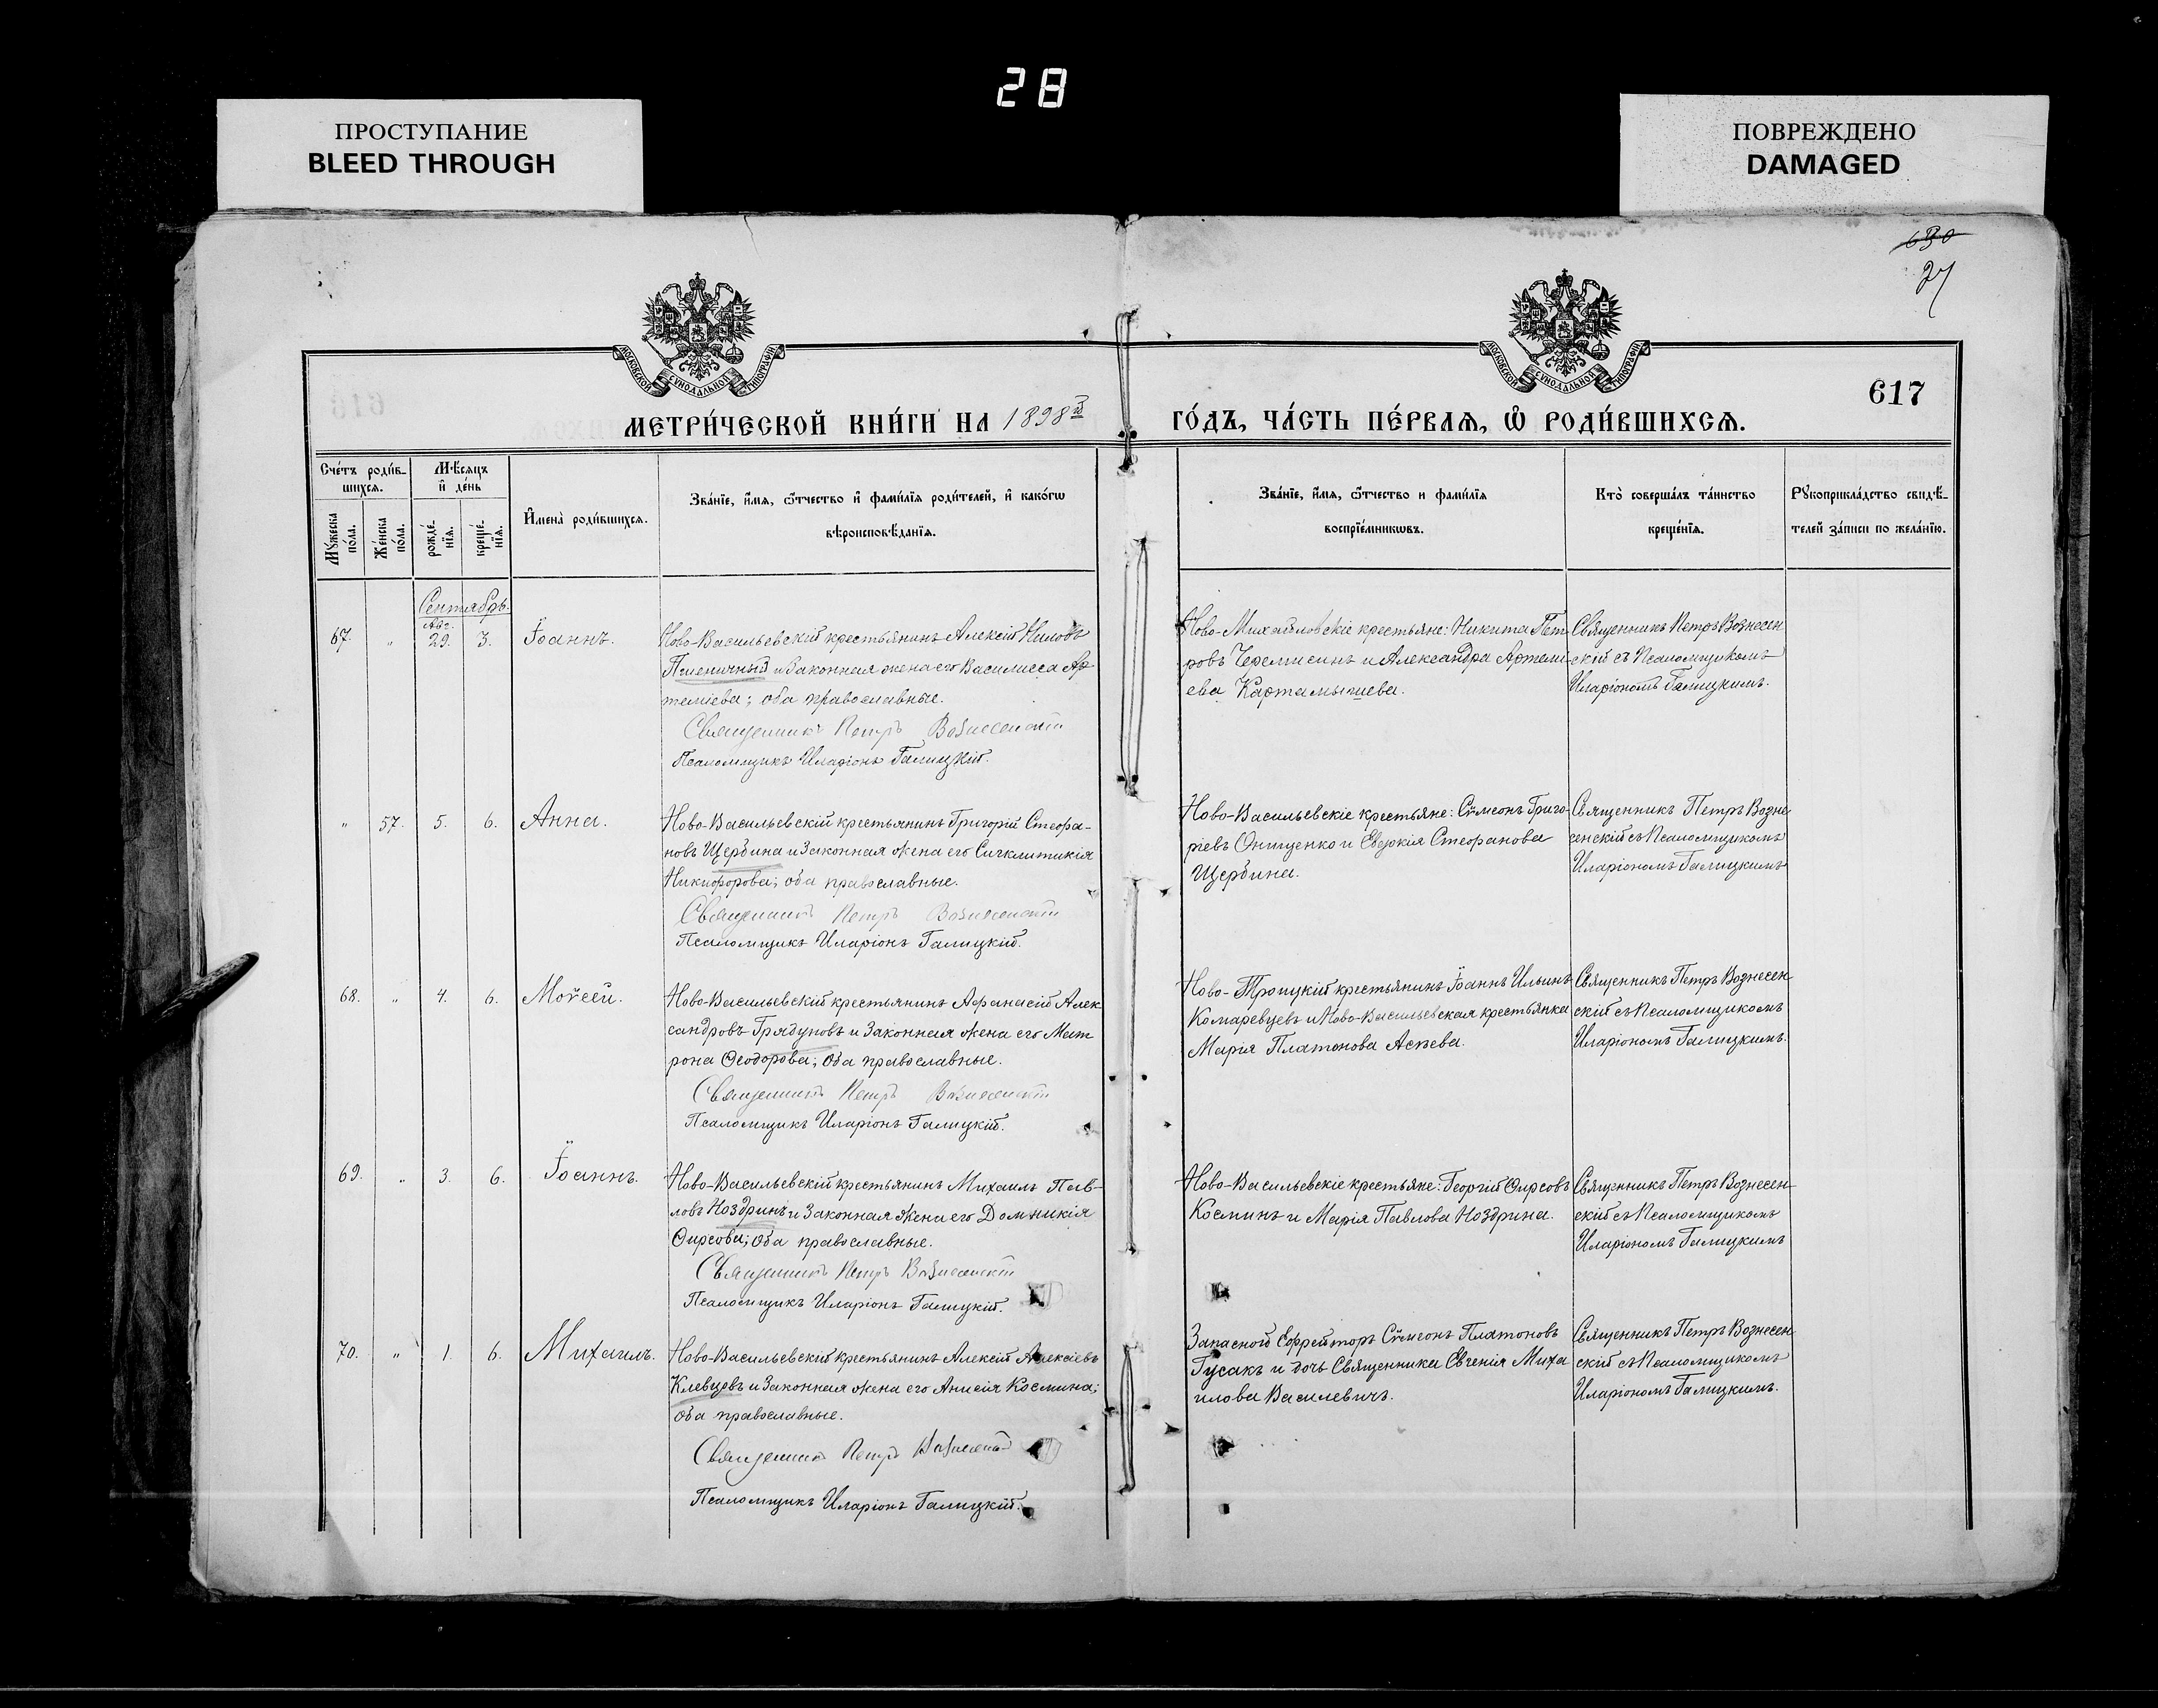 28
ПРОСТУПАНИЕ
BLEED THROUGH
ПОВРЕЖДЕНО
DAMAGED
630
27
МОСКОВСКОЙ СѴНОДАЛЬНОЙ ТИПОГРАФІИ
МОСКОВСКОЙ СѴНОДАЛЬНОЙ ТИПОГРАФІИ
617
МЕТРИ́ЧЕСКОЙ КНИ́ГИ НА 1898й ГО́ДЪ, ЧА́СТЬ ПЕ́РВАѦ, Ѡ҆ РОДИ́ВШИХСѦ.
Сче́тъ роди́в-
шихсѧ.
Мѣ́сяцъ
и҆ де́нь
Мꙋ́жеска по́ла.
Же́нска по́ла.
рожде́-
нїѧ.
креще́-
нїѧ.
И҆мена̀ роди́вшихсѧ.
Зва́нїе, и҆́мѧ, ѻ҆́тчество и҆ фами́лїѧ роди́телей, и҆ како́гѡ
вѣроисповѣ́данїѧ.
Зва́нїе, и҆́мѧ, ѻ҆́тчество и фами́лїѧ
воспрїе́мникѡвъ.
Кто̀ соверша́лъ та́инство
креще́нїѧ.
Рꙋкоприкла́дство свидѣ́-
телей за́писи по жела́нїю.
Сентябрь.
Авг.
67. " 29. 3. Іоаннъ.
Ново-Васильевскій крестьянинъ Алексій Ниловъ
Пшеничный и законная жена его Василисса Ар
теміева; оба православные.
Священникъ Петръ Вознесенскій
Псаломщикъ Иларіонъ Галицкій.
Ново-Михайловскіе крестьяне: Никита Пет-
ровъ Черемисинъ и Александра Артемі-
ева Картамышева.
Священникъ Петръ Вознесен
скій съ Псаломщикомъ
Иларіономъ Галицкимъ.
" 57. 5. 6. Анна.
Ново-Васильевскій крестьянинъ Григорій Стефа-
новъ Щербина и законная жена его Сигклитикія
Никифорова; оба православные.
Священникъ Петръ Вознесенскій
Псаломщикъ Иларіонъ Галицкій.
Ново-Васильевскіе крестьяне: Сѵмеонъ Григо-
ріевъ Онищенко и Евдокія Стефанова
Щербина.
Священникъ Петръ Возне
сенскій съ Псаломщикомъ
Иларіономъ Галицкимъ
68. " 4. 6. Моѵсей.
Ново-Васильевскій крестьянинъ Афанасій Алек
сандровъ Грядуновъ и законная жена его Мат
рона Ѳеодорова; оба православные.
Священникъ Петръ Вознесенскій
Псаломщикъ Иларіонъ Галицкій.
Ново-Троицкій крестьянинъ Іоаннъ Ильинъ
Комаревцевъ и Ново-Васильевская крестьянка
Марія Платонова Асѣева.
Священникъ Петръ Вознесен-
скій съ Псаломщикомъ
Иларіономъ Галицкимъ.
69. " 3. 6. Іоаннъ.
Ново-Васильевскій крестьянинъ Михаилъ Пав-
ловъ Ноздринъ и законная жена его Домникія
Ѳирсова; оба православные.
Священникъ Петръ Вознесенскій
Псаломщикъ Иларіонъ Галицкій.
Ново-Васильевскіе крестьяне: Георгій Ѳирсовъ
Косминъ и Марія Павлова Ноздрина.
Священникъ Петръ Вознесен-
скій съ Псаломщикомъ
Иларіономъ Галицкимъ
70. " 1. 6. Михаилъ.
Ново-Васильевскій крестьянинъ Алексій Алексіевъ
Клевцовъ и законная жена его Анисія Космина;
оба православные.
Священникъ Петръ Вознесенскій
Псаломщикъ Иларіонъ Галицкій.
Запасной Ефрейторъ Сѵмеонъ Платоновъ
Гусакъ и дочь Священника Евгенія Миха
илова Василевичъ.
Священникъ Петръ Вознесен
скій съ Псаломщикомъ
Иларіономъ Галицкимъ.